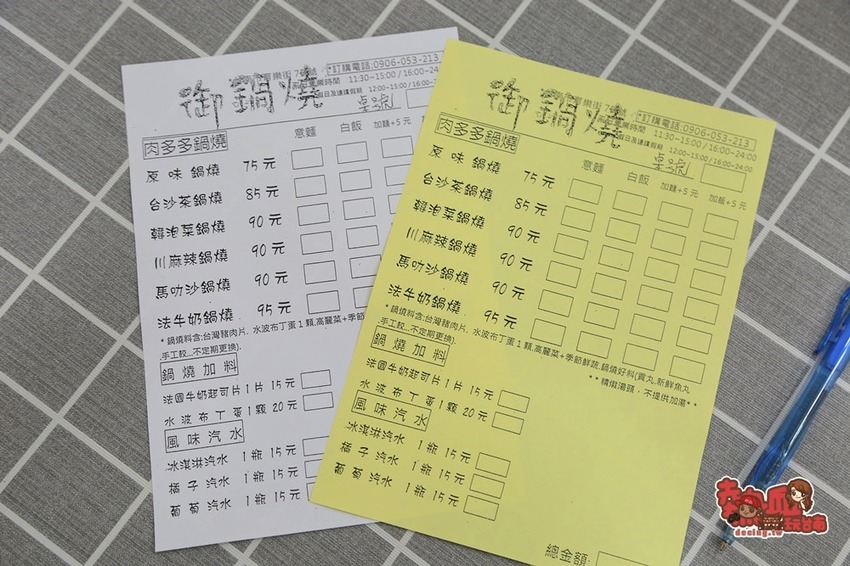 御鍋燒
*訂購電話:0906-053-213
11:30~15:00 / 16:00~24:00
12:00~15:00 / 16:00~
桌號
肉多多鍋燒
意麵 白飯 加麵+5元
原味鍋燒 75元
台沙茶鍋燒 85元
韓泡菜鍋燒 90元
川麻辣鍋燒 90元
馬叻沙鍋燒 90元
法牛奶鍋燒 95元
*鍋燒料含:台灣豬肉片. 水波布丁蛋1顆.高麗菜+季節
.手工餃...不定期更換).
鍋燒加料
法國牛奶起司片1片15元
水波布丁蛋1顆20元
風味汽水
冰淇淋汽水 1瓶15元
橘子汽水 1瓶15元
葡萄汽水 1瓶15元
御鍋燒
*訂購電話:0906-053-213
營業時間 11:30~15:00 / 16:00~24:00
假日及連續假期 12:00~15:00 / 16:00~24:00
桌號
肉多多鍋燒
意麵 白飯 加麵+5元 加飯+5元
原味鍋燒 75元
台沙茶鍋燒 85元
韓泡菜鍋燒 90元
川麻辣鍋燒 90元
馬叻沙鍋燒 90元
法牛奶鍋燒 95元
*鍋燒料含:台灣豬肉片. 水波布丁蛋1顆.高麗菜+季節鮮蔬.鍋燒好料(貢丸.新鮮魚丸
.手工餃...不定期更換).
**精燉湯頭，不提供加湯**
鍋燒加料
法國牛奶起司片1片15元
水波布丁蛋1顆20元
風味汽水
冰淇淋汽水 1瓶15元
橘子汽水 1瓶15元
葡萄汽水 1瓶15元
總金額:
熱血玩台南
decing.tw